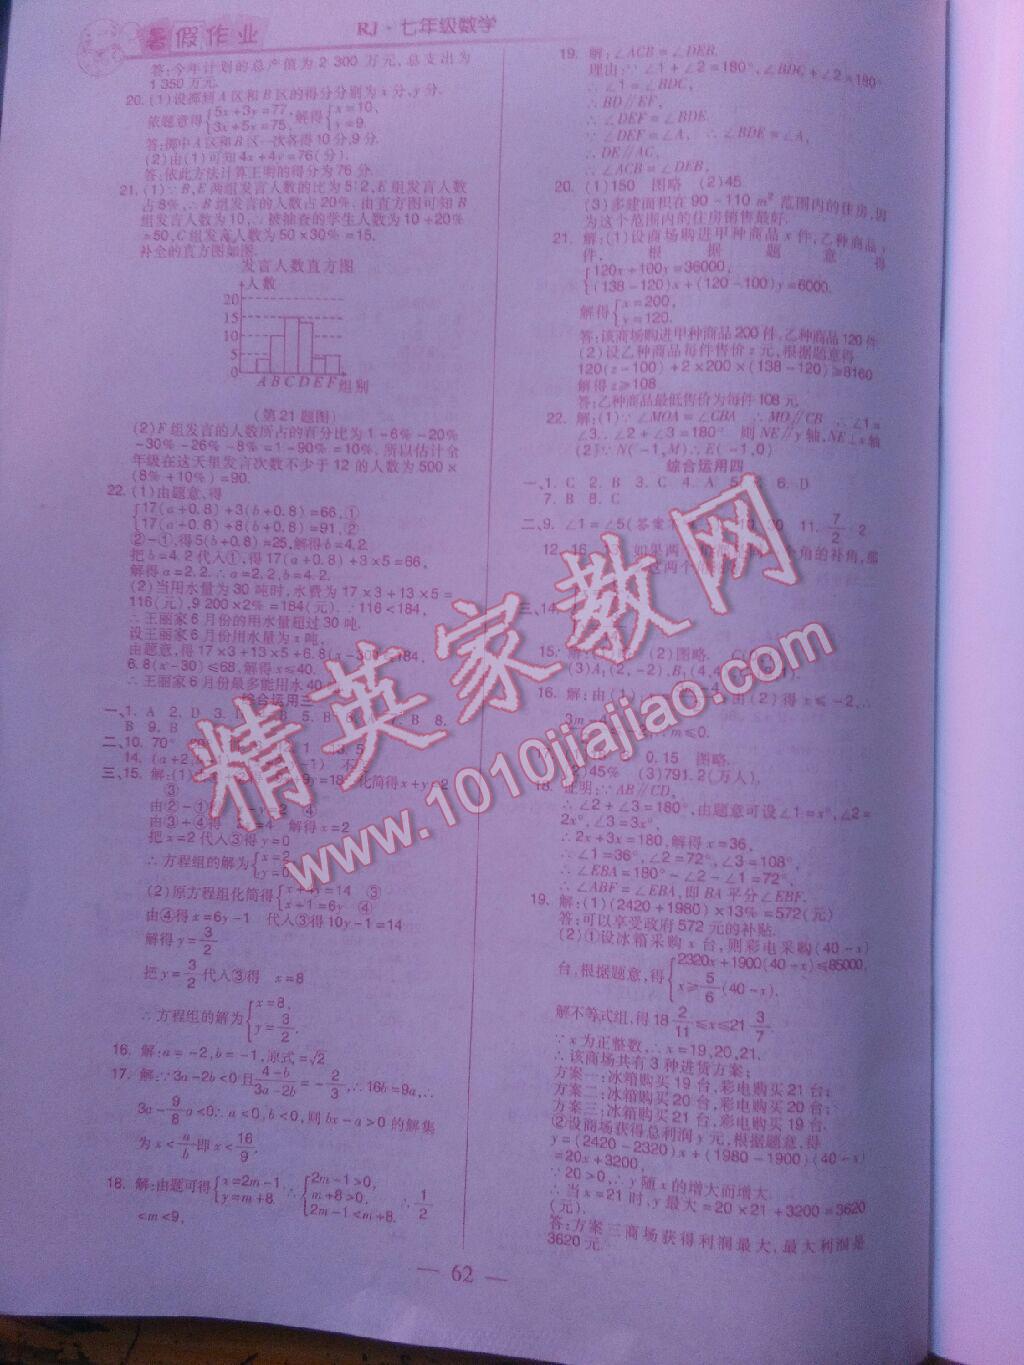 暑假作业
RJ·七年级数学
答:今年计划的总产值为2 300万元,总支出为
1 350万元.
20. (1)设掷到A区和B区的得分分别为x分,y分.
依题意得{5x+3y=77, 3x+5y=75, 解得{x=10, y=9.
答:掷中A区和B区一次各得10分,9分.
(2)由(1)可知4x+4y=76(分).
答:依此方法计算王明的得分为76分.
21. (1)∵B,E两组发言人数的比为5:2,E组发言人数
占8%,∴B组发言的人数占20%.由直方图可知B
组发言人数为10,∴被抽查的学生人数为10÷20%
=50,C组发言人数为50×30%=15.
补全的直方图如图.
发言人数直方图
人数
20
15
10
5
0
A B C D E F 组别
(第21题图)
(2)F组发言的人数所占的百分比为1-6%-20%
-30%-26%-8%=1-90%=10%,所以估计全
年级在这天里发言次数不少于12的人数为500×
(8%+10%)=90.
22. (1)由题意,得
{17(a+0.8)+3(b+0.8)=66,①
17(a+0.8)+8(b+0.8)=91,②
②-①,得5(b+0.8)=25,解得b=4.2.
把b=4.2代入①,得17(a+0.8)+3×5=66,
解得a=2.2.∴a=2.2,b=4.2.
(2)当用水量为30吨时,水费为17×3+13×5=
116(元),9 200×2%=184(元).∵116<184,
∴王丽家6月份的用水量超过30吨.
设王丽家6月份用水量为x吨,
由题意,得17×3+13×5+6.8(x-30)≤184,
6.8(x-30)≤68,解得x≤40.
∴王丽家6月份最多能用水40
综合运用三
一、1. A 2. D 3. B 5. B 7. B 8.
B 9. B
二、10. 70°
14. (a+2,
三、15. 解:(1) =18 化简得x+y=2
③
由②-①得 =2 ④
由③+④得 =4 解得x=2
把x=2代入③得y=0
∴方程组的解为{x=2 y=0
(2)原方程组化简得{x+4y=14 ③ x+1=6y ④
由④得x=6y-1 代入③得10y-1=14
解得y=3/2
把y=3/2代入③得 x=8
∴方程组的解为{x=8, y=3/2.
16. 解:a=-2,b=-1,原式=√2
17. 解:∵3a-2b<0且(4-b)/(3a-2b)=-2/3,∴16b=9a,∴
3a-9/8a<0∴a<0,b<0,则bx-a>0的解集
为x<a/b即x<16/9.
18. 解:由题可得{x=2m-1 y=m+8 ∴{2m-1>0, m+8>0, 2m-1<m+8. ∴1/2
<m<9,
19. 解:∠ACB=∠DEB.
理由:∵∠1+∠2=180°,∠BDC+∠2=180°
∴∠1=∠BDC,
∴BD∥EF,
∴∠DEF=∠BDE.
∵∠DEF=∠A,∴∠BDE=∠A,
∴DE∥AC,
∴∠ACB=∠DEB,
20. (1)150 图略 (2)45
(3)多建面积在90~110 m²范围内的住房,因
为这个范围内的住房销售最好.
21. 解:(1)设商场购进甲种商品x件,乙种商品y
件, 根据题意得
{120x+100y=36000,
(138-120)x+(120-100)y=6000.
解得{x=200, y=120.
答:该商场购进甲种商品200件,乙种商品120件
(2)设乙种商品每件售价z元,根据题意得
120(z-100)+2×200×(138-120)≥8160
解得z≥108
答:乙种商品最低售价为每件108元.
22. 解:(1)∵∠MOA=∠CBA ∴MO∥CB ∴∠1=
∠3.∴∠2+∠3=180° 则NE∥y轴,NE⊥x轴
(2)∵N(-1,M)∴E(-1,0)
综合运用四
一、1. C 2. B 3. C 4. A 5. 6. D
7. B 8. C
二、9. ∠1=∠5(答案 10. 30 11. 7/2 2
12. 16 如果两个 个角的补角,那
三、14.
15. (2)图略.
(3)A₁(2,-2),B₁(4,
16. 解:由(1) 由(2)得x≤-2,∴
m≤0.
0.15 图略.
(2)45% (3)791.2(万人).
18. 证明:∵AB∥CD,
∴∠2+∠3=180°,由题意可设∠1=x°,∠2=
2x°,∠3=3x°,
∴2x+3x=180,解得x=36,
∴∠1=36°,∠2=72°,∠3=108°,
∴∠EBA=180°-∠2-∠1=72°,
∴∠ABF=∠EBA,即BA平分∠EBF.
19. 解:(1)(2420+1980)×13%=572(元)
答:可以享受政府572元的补贴.
(2)①设冰箱采购x台,则彩电采购(40-x)
台,根据题意,得{2320x+1900(40-x)≤85000, x≥5/6(40-x).
解不等式组,得18 2/11≤x≤21 3/7.
∵x为正整数,∴x=19,20,21.
∴该商场共有3种进货方案:
方案一:冰箱购买19台,彩电购买21台;
方案二:冰箱购买20台,彩电购买20台;
方案三:冰箱购买21台,彩电购买19台.
②设商场获得总利润y元,根据题意,得
y=(2420-2320)x+(1980-1900)(40-x)
=20x+3200,
∵20>0,∴y随x的增大而增大.
∴当x=21时,y最大=20×21+3200=3620
(元).
答:方案三商场获得利润最大,最大利润是
3620元.
— 62 —
精英家教网
www.1010jiajiao.com